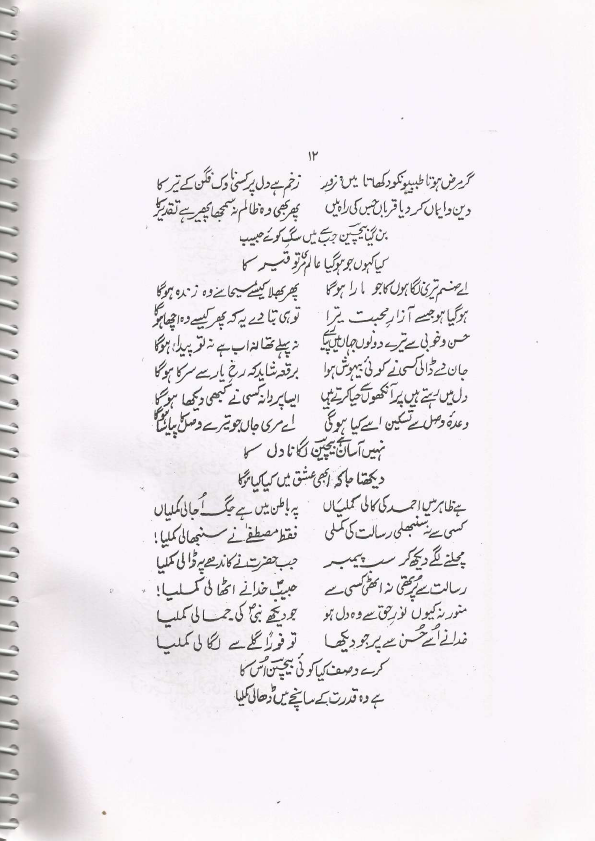 ۱۲
گر مرض ہوتا طبیبونکو دکھاتا میں ضرور زخم ہے دل پر کسی ناوک فگن کے تیر کا
دین و ایماں کر دیا قرباں جس کی راہ میں پھر بھی وہ ظالم نہ سمجھا پھیر ہے تقدیر کا
بن گیا بیچین جب سے میں سگِ کوئے حبیب
کیا کہوں جو ہو گیا عالم مری توقیر کا
اے صنم تیری نگاہوں کا جو مارا ہوگا پھر بھلا کیسے مسیحا سے وہ زندہ ہوگا
ہو گیا ہو جسے آزارِ محبت تیرا تو ہی بتا دے یہ کہ پھر کیسے وہ اچھا ہوگا
حسن و خوبی میں ترے دونوں جہاں میں نہ پہلے تھا نہ اب ہے نہ تو پیدا ہوگا
جان دے ڈالی کسی نے کوئی بیہوش ہوا برقعہ شاید کہ رخِ یار سے سرکا ہوگا
دل میں بستے ہیں پر آنکھوں سے حیا کرتے ہیں ایسا پردا نہ کسی نے کبھی دیکھا ہوگا
وعدۂ وصل سے تسکین اسے کیا ہوگی اے مری جاں جو ترے وصل کا پیاسا ہوگا
نہیں آسان ہے بیچین لگانا دل کا
دیکھتا جا کہ ابھی عشق میں کیا کیا ہوگا
ہے ظاہر میں احمد کی کالی کملیاں پہ باطن میں ہے جگ اُجالی کملیاں
کسی سے نہ سنبھلی رسالت کی کملی فقط مصطفےٰ نے سنبھالی کملیا!
مچلنے لگے دیکھ کر سب پیمبر جب حضرت نے کاندھے پہ ڈالی کملیا
رسالت سے پُر تھی نہ اٹھی کسی سے حبیبِ خدا نے اٹھا لی کملیا!
منور نہ کیوں نورِ حق سے وہ دل ہو جو دیکھے نبیؐ کی جمالی کملیا
خدا نے اُسے حُسن سے پر جو دیکھا تو فوراً گلے سے لگا لی کملیا
کرے وصف کیا کوئی بیچین اُس کا
ہے وہ قدرت کے سانچے میں ڈھالی کملیا